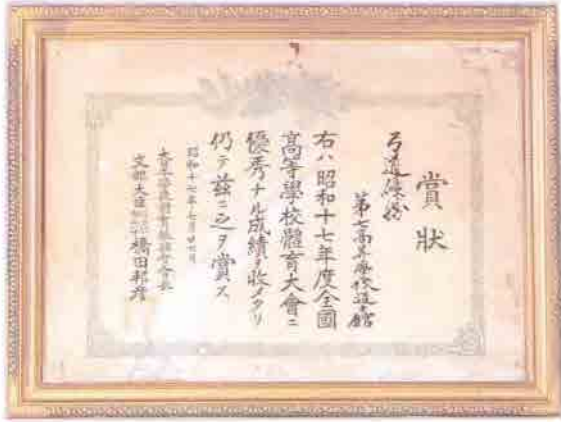 賞狀
弓道優勝
第七高等學校造士館
右ハ昭和十七年度全國
高等學校體育大會ニ
優秀ナル成績ヲ收メタリ
仍テ玆ニ之ヲ賞ス
昭和十七年七月廿七日
文部大臣 橋田邦彦